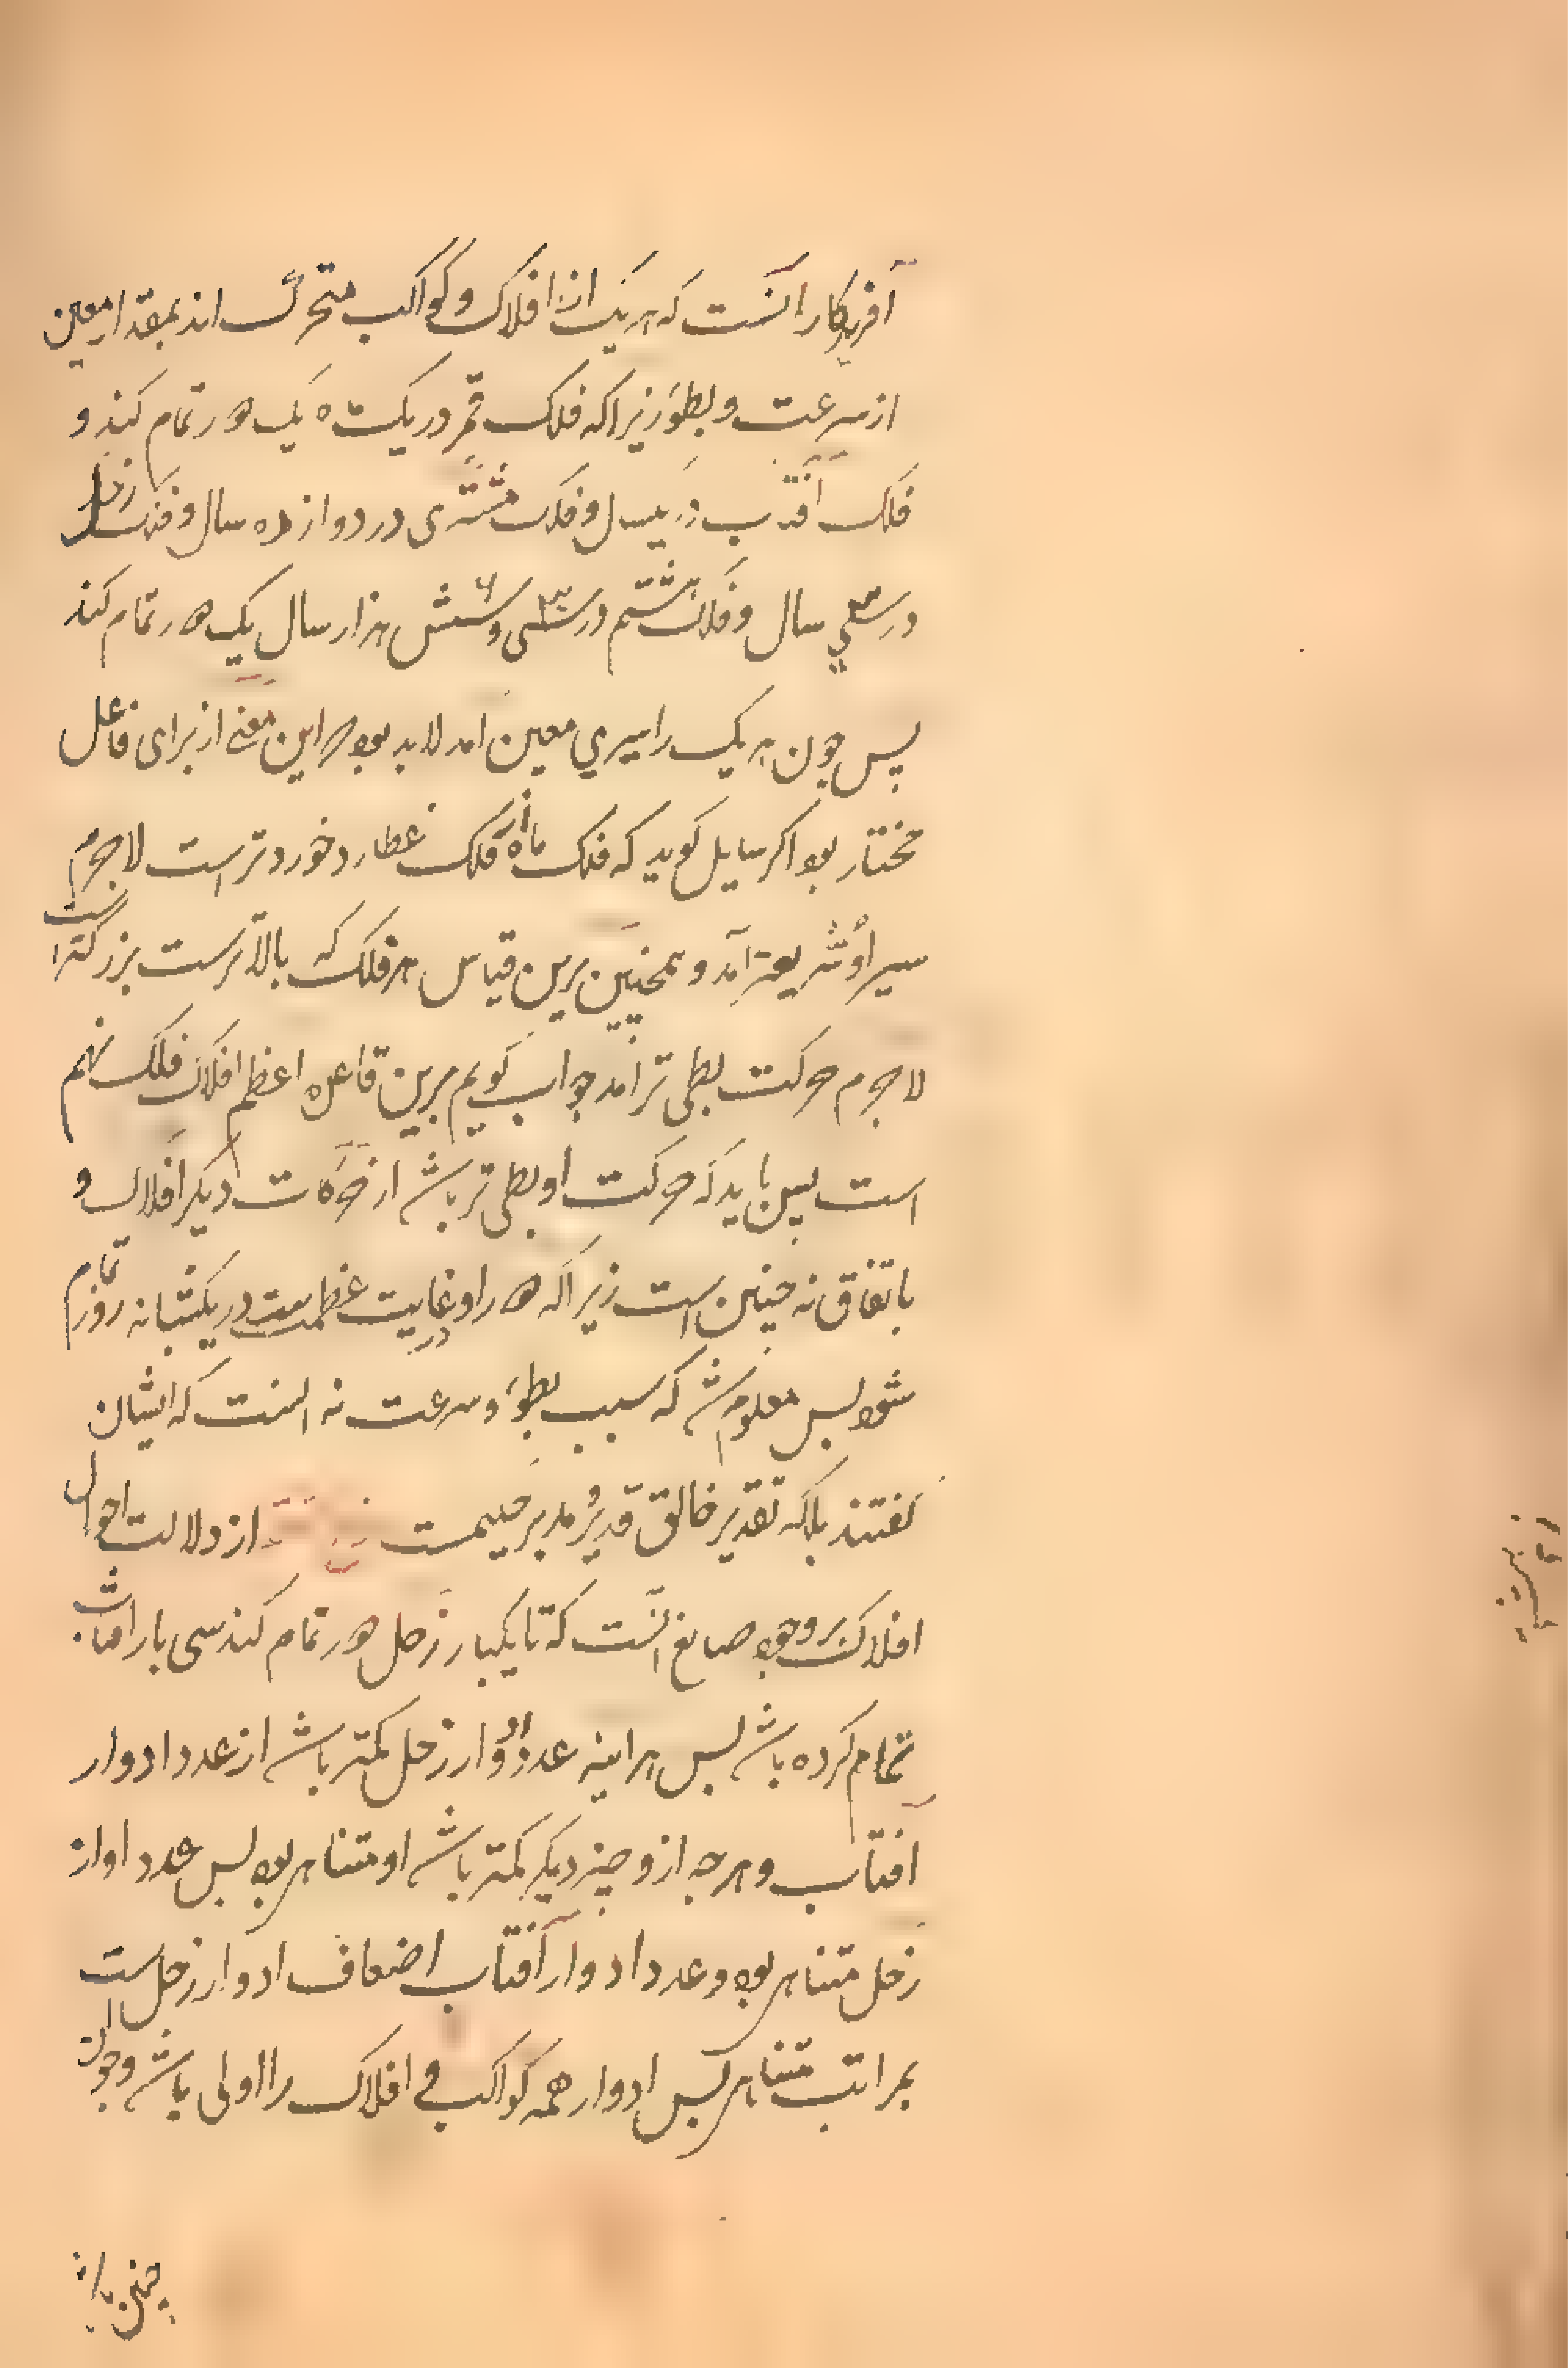 آفریدکار آنست که هر یک از افلاک و کواکب متحرک اند بمقدار معین
از سرعت و بطوء زیرا که فلک قمر در یک ماه یک دور تمام کند و
فلک آفتاب در یکسال و فلک مشتری در دوازده سال و فلک زحل
در سی سال و فلک هشتم در سی و شش هزار سال یک دور تمام کند
پس چون هر یک را سیری معین امد لابد بود که این معنی از برای فاعل
مختار بود اکر سایل کوید که فلک ماه از فلک عطارد خوردتر است لاجرم
سیر او سریعتر آمد و همچنین برین قیاس هر فلک که بالاترست بزرکتر است
لاجرم حرکت بطی تر امد جواب کویم برین قاعده اعظم افلاک فلک نهم
است پس باید که حرکت او بطی تر باشد از حرکات دیکر افلاک و
باتفاق نه چنین است زیرا که دور او در غایت عظمت است در یکشبانه روز تمام
شود پس معلوم شد که سبب بطوء و سرعت نه انست که ایشان
کفتند بلکه تقدیر خالق قدیر و مدبر حکیمست از دلالت احوال
افلاک بر وجود صانع آنست که تا یکبار زحل دور تمام کند سی بار افتاب
تمام کرده باشد پس هراینه عدد ادوار زحل کمتر باشد از عدد ادوار
آفتاب و هرچه از و چیز دیکر کمتر باشد او متناهی بود پس عدد ادوار
زحل متناهی بود و عدد ادوار آفتاب اضعاف ادوار زحل است
بمراتب متناهی پس ادوار همه کواکب و افلاک را اولی باشد و چون
چنین باشد